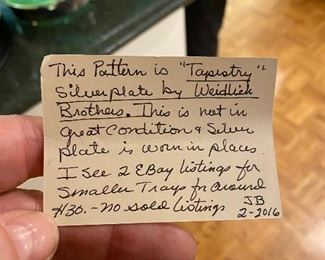 This Pattern is "Tapestry"
Silverplate by Weidlich
Brothers. This is not in
great Condition & Silver
plate is worn in places.
I See 2 EBay listings for
Smaller Trays for around
$30.- no sold listings JB
2-2016